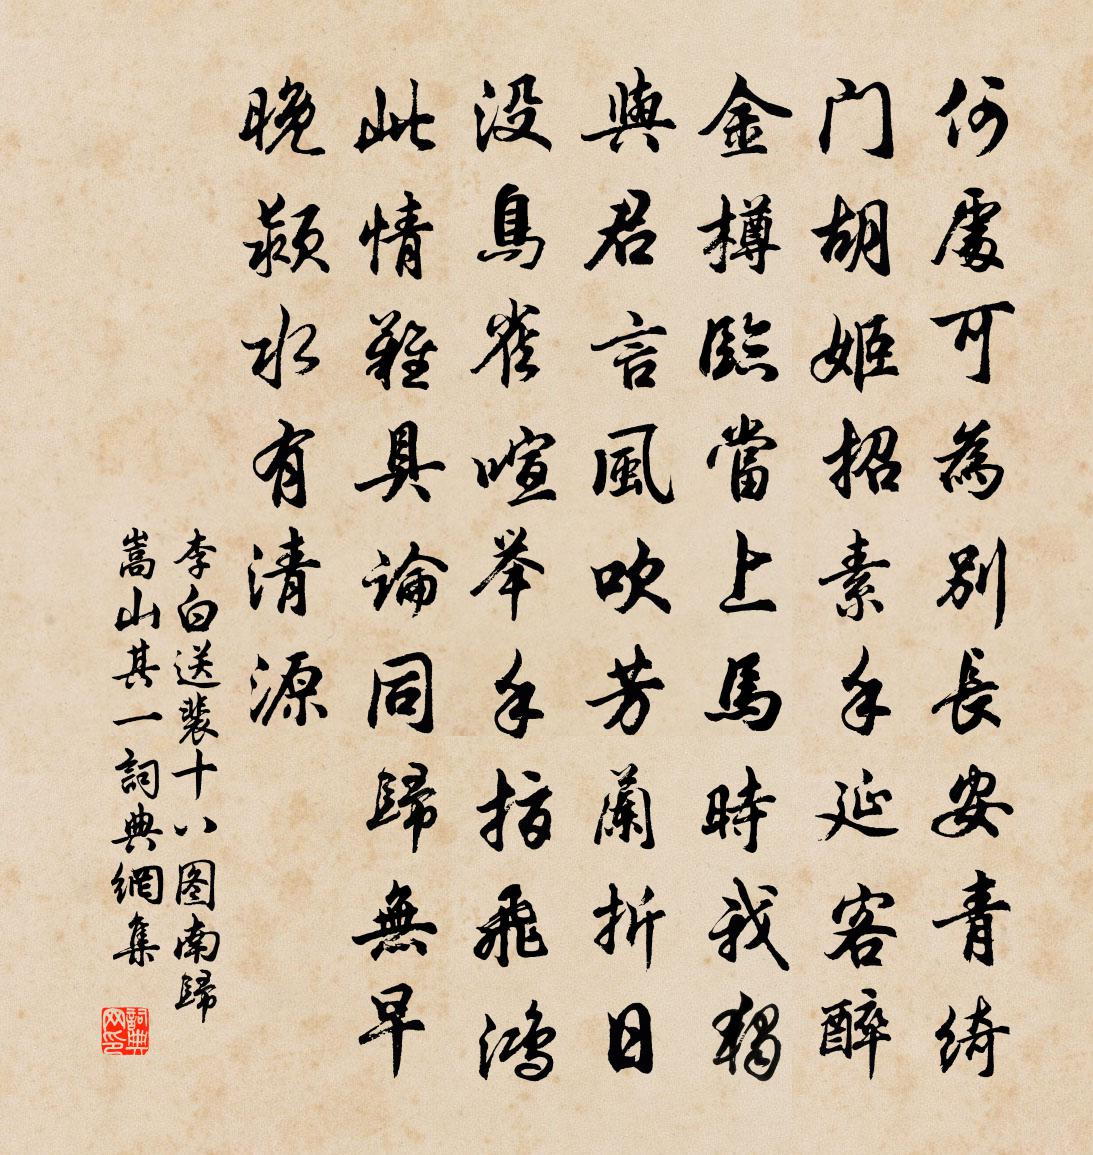 何處可為別長安青綺
门胡姬招素手延客醉
金樽臨當上馬時我獨
與君言風吹芳蘭折日
没鳥雀喧举手指飛鴻
此情難具論同歸無早
晚潁水有清源
李白送裴十八图南歸
嵩山其一詞典網集
詞典
网印